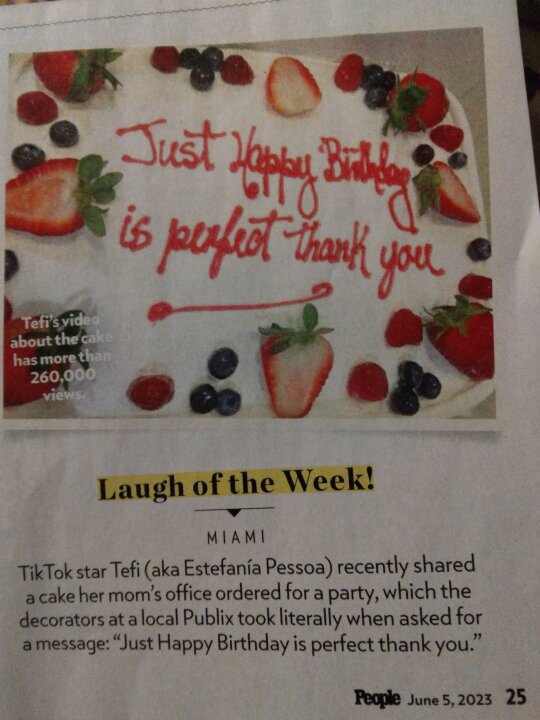 Just Happy Birthday
is perfect thank you
Tefi's video
about the cake
has more than
260,000
views.
Laugh of the Week!
MIAMI
TikTok star Tefi (aka Estefanía Pessoa) recently shared
a cake her mom's office ordered for a party, which the
decorators at a local Publix took literally when asked for
a message: “Just Happy Birthday is perfect thank you.”
People June 5, 2023 25